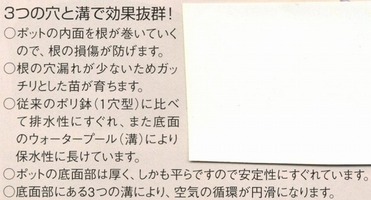 3つの穴と溝で効果抜群!
○ポットの内面を根が巻いていく
ので、根の損傷が防げます。
○根の穴漏れが少ないためガッ
チリとした苗が育ちます。
○従来のポリ鉢(1穴型)に比べ
て排水性にすぐれ、また底面
のウォータープール(溝)により
保水性に長けています。
○ポットの底面部は厚く、しかも平らですので安定性にすぐれています。
○底面部にある3つの溝により、空気の循環が円滑になります。